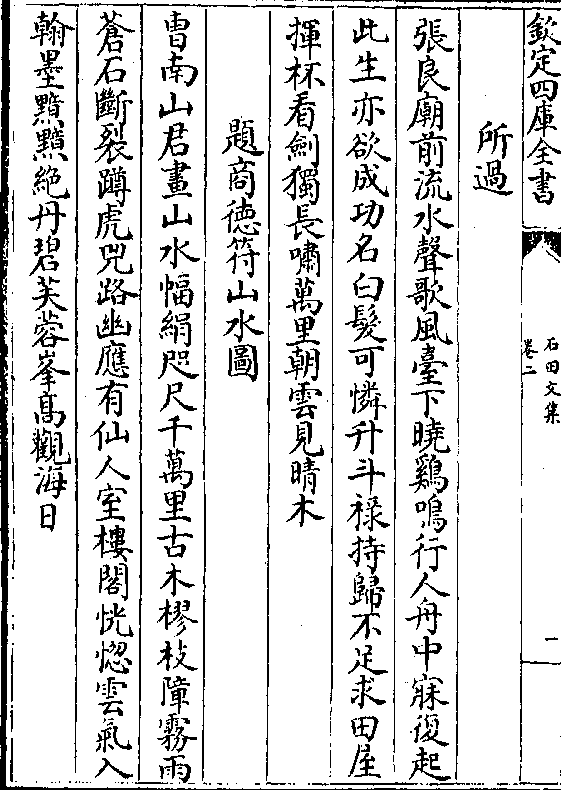 欽定四庫全書
石田文集
卷二
一
所過
張良廟前流水聲歌風臺下曉鷄鳴行人舟中寐復起
此生亦欲成功名白髮可憐升斗禄持歸不足求田屋
揮杯看劍獨長嘯萬里朝雲見晴木
題商徳符山水圖
曹南山君畫山水幅絹咫尺千萬里古木樛枝障霧雨
蒼石斷裂蹲虎兕路幽應有仙人室樓閣恍惚雲氣入
翰墨黯黯絶丹碧芙蓉峯髙觀海日